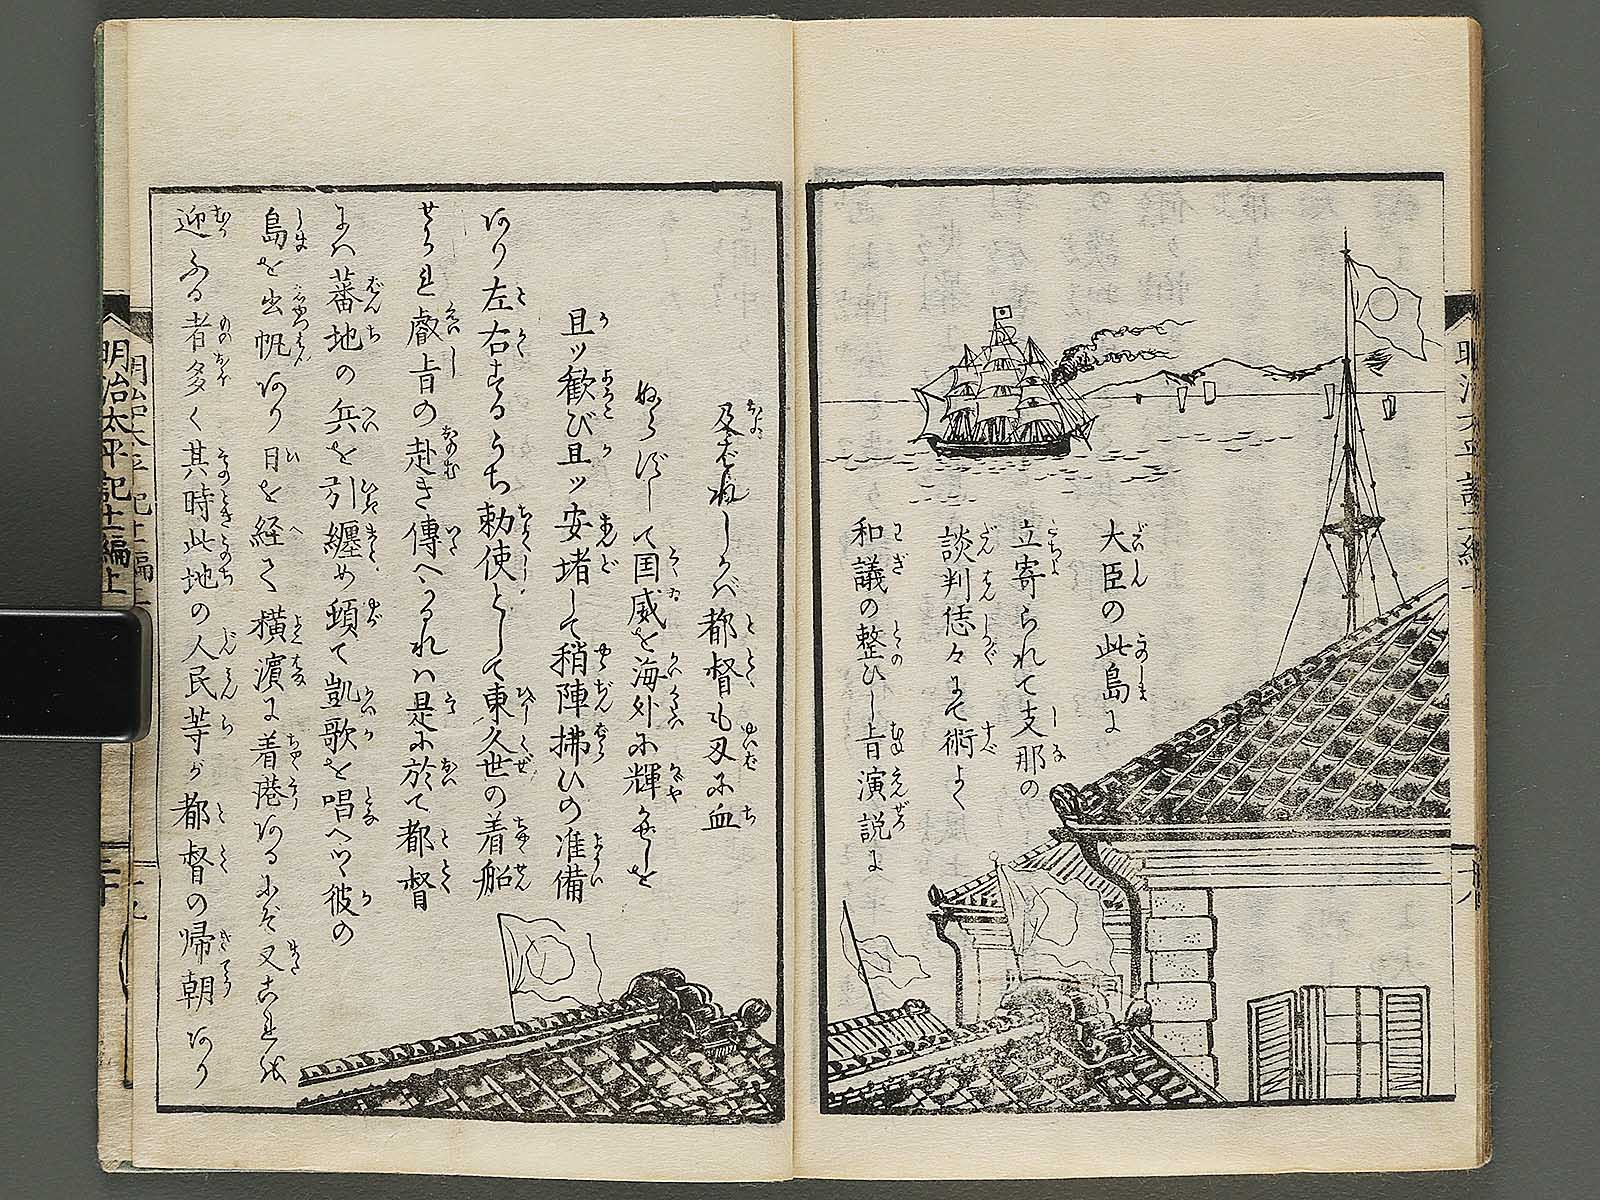 大臣の此島に
立寄られて支那の
談判恁々にて術よく
和議の整ひし旨演説に
及ばれしかば都督も刃に血
ぬらずして国威を海外に輝かせしを
且ッ歓び且ッ安堵して稍陣拂ひの准備
あり左右するうち勅使として東久世の着船
せられ叡旨の赴き傳へらるれハ是に於て都督
にハ蕃地の兵を引纏め頓て凱歌を唱へつゝ彼の
島を出帆あり日を経て横濱に着港あるにぞ又これを
迎ふる者多く其時此地の人民等が都督の帰朝あり
明治太平記十一編上